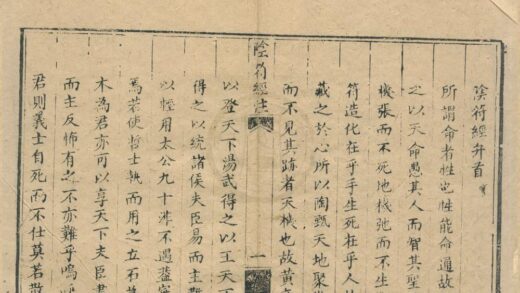 陰符經并首
所謂命者性也性能命通故
之以天命愚其人而智其聖
機張而不死地機弛而不生
符造化在乎手生死在乎人
藏之於心所以陶甄天地聚
而不見其跡者天機也故黃
陰符經注
一
以登天下湯武得之以王天下
得之以統諸侯夫臣易而主難
以輕用太公九十非不遇蓋審
焉若使哲士執而用之立石為
木為君亦可以享天下夫臣
而主反怖有之不亦難乎嗚
君則義士自死而不仕莫若散